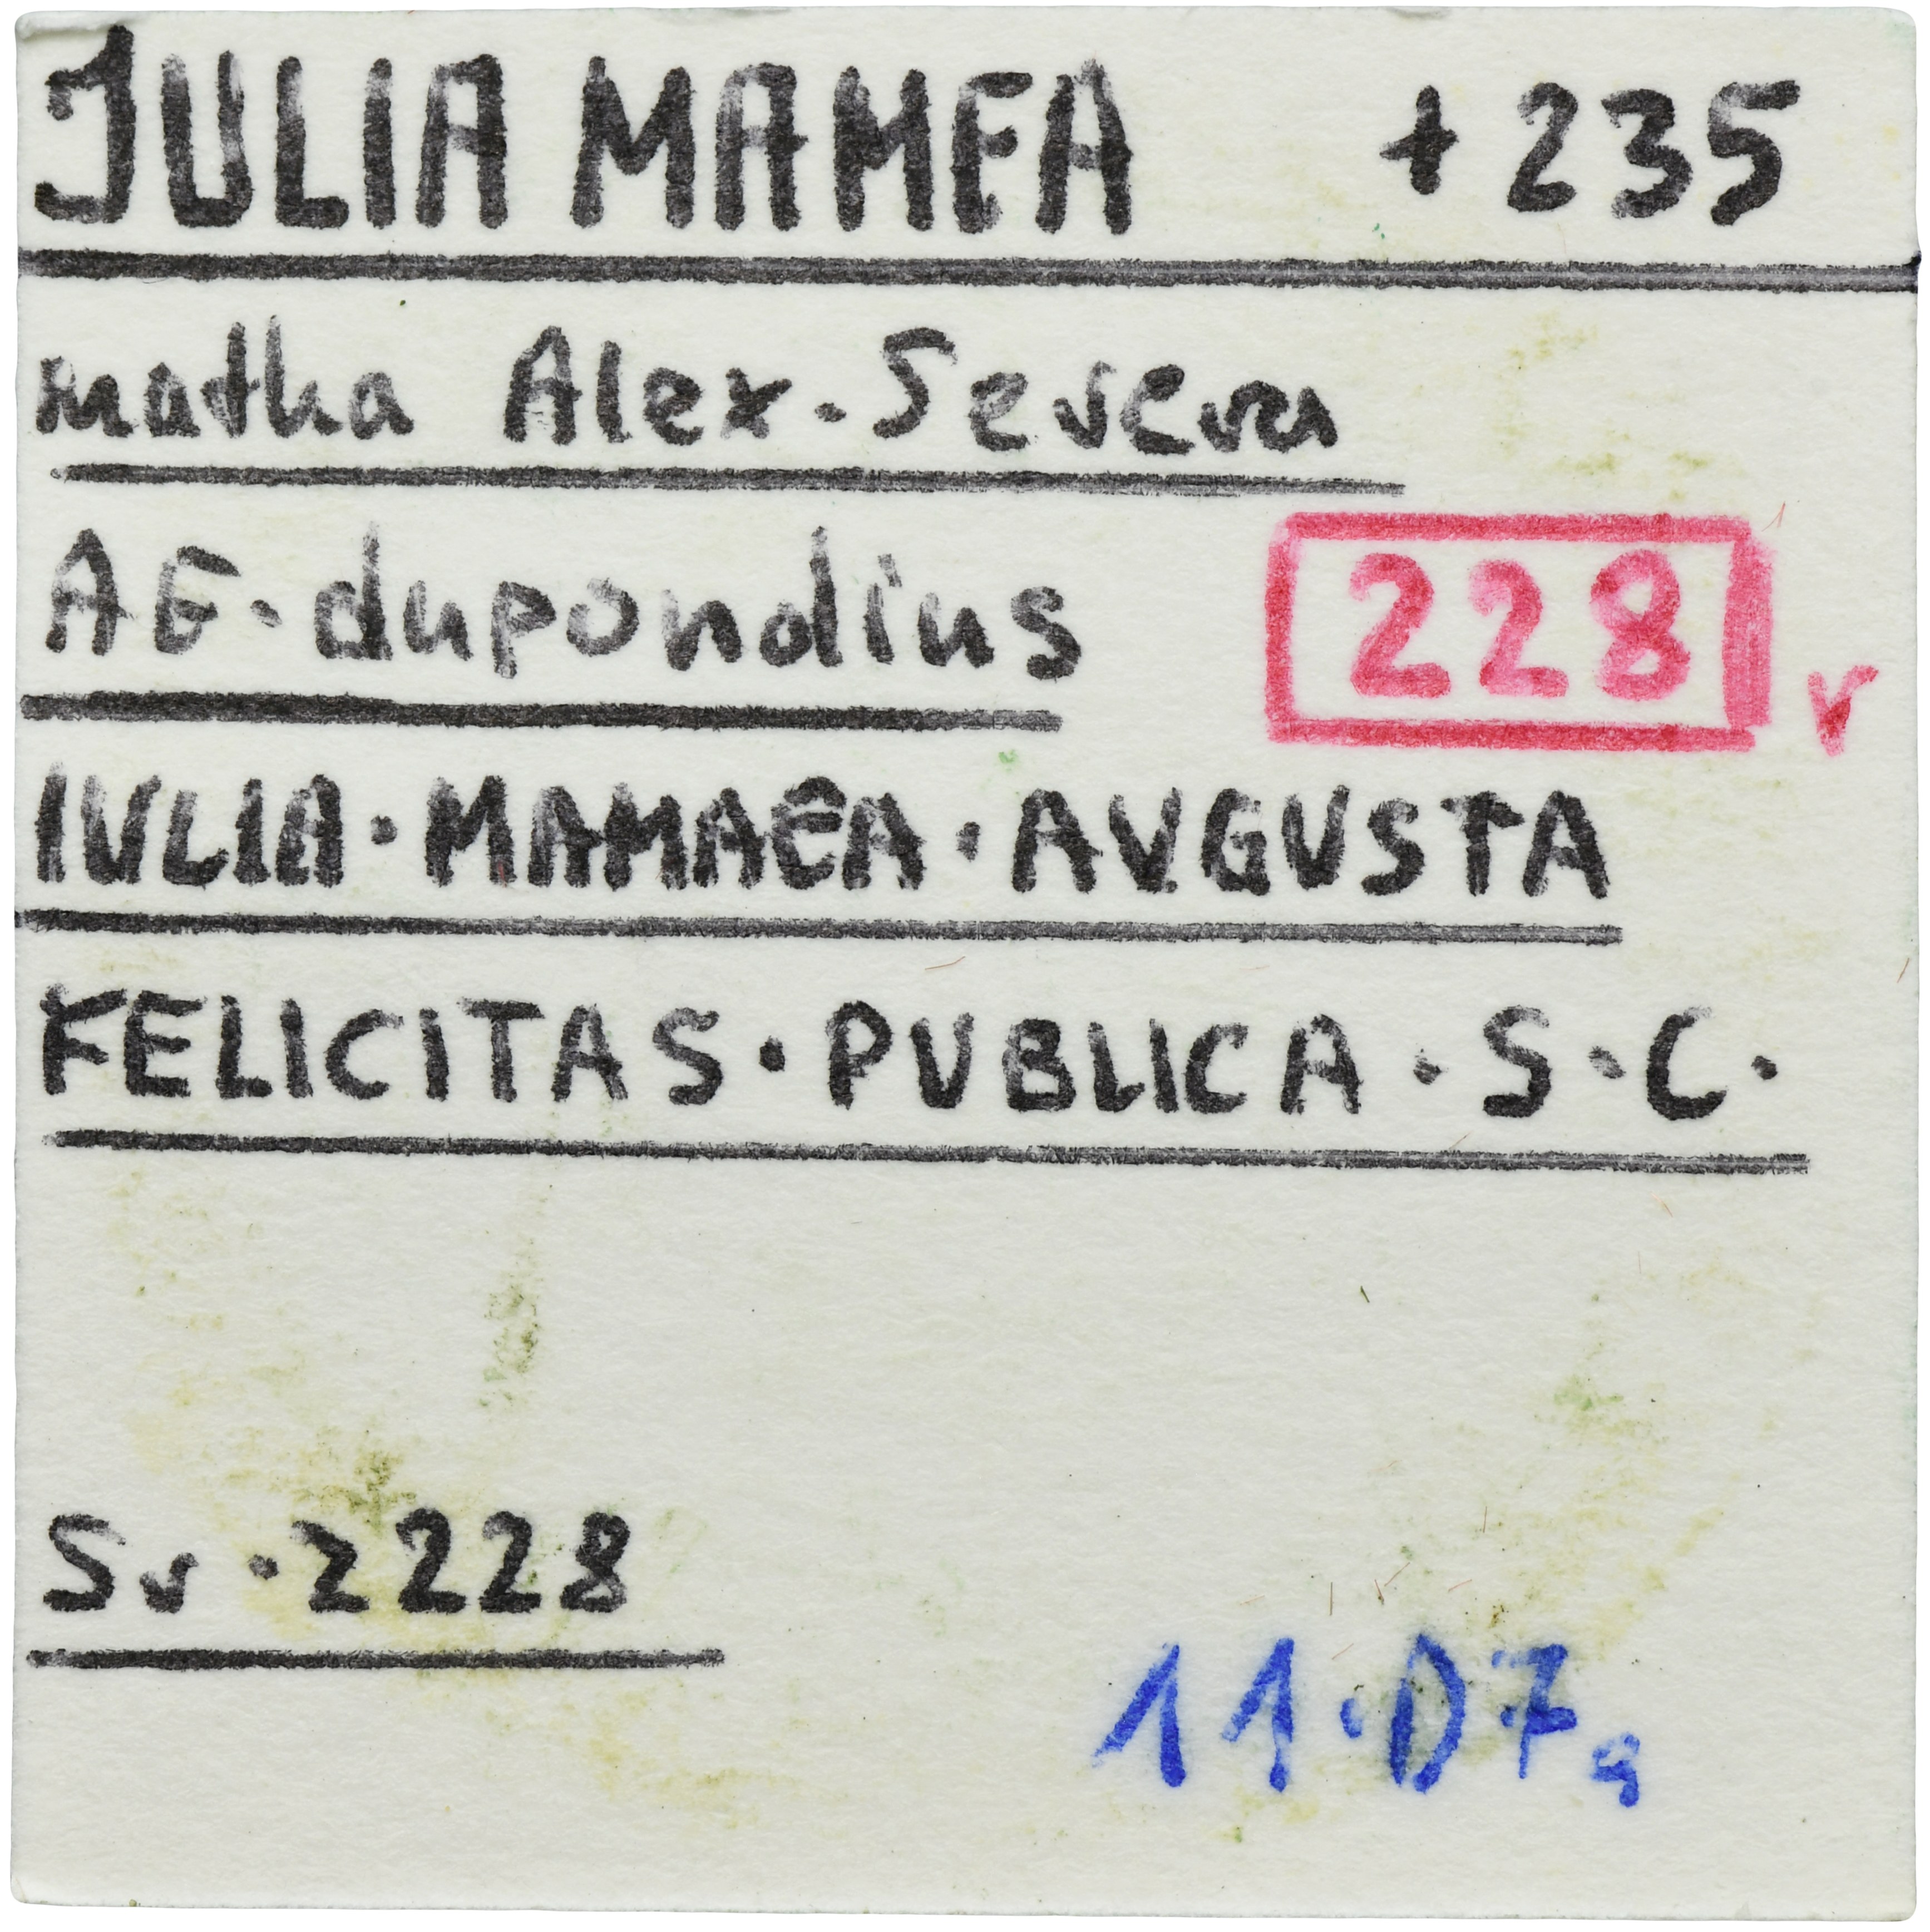 JULIA MAMEA + 235
matka Alex. Severa
AE. dupondius 228 v
IVLIA · MAMAÊA · AVGVSTA
FELICITAS · PUBLICA · S · C ·
Sv · 2228
11 · D7a